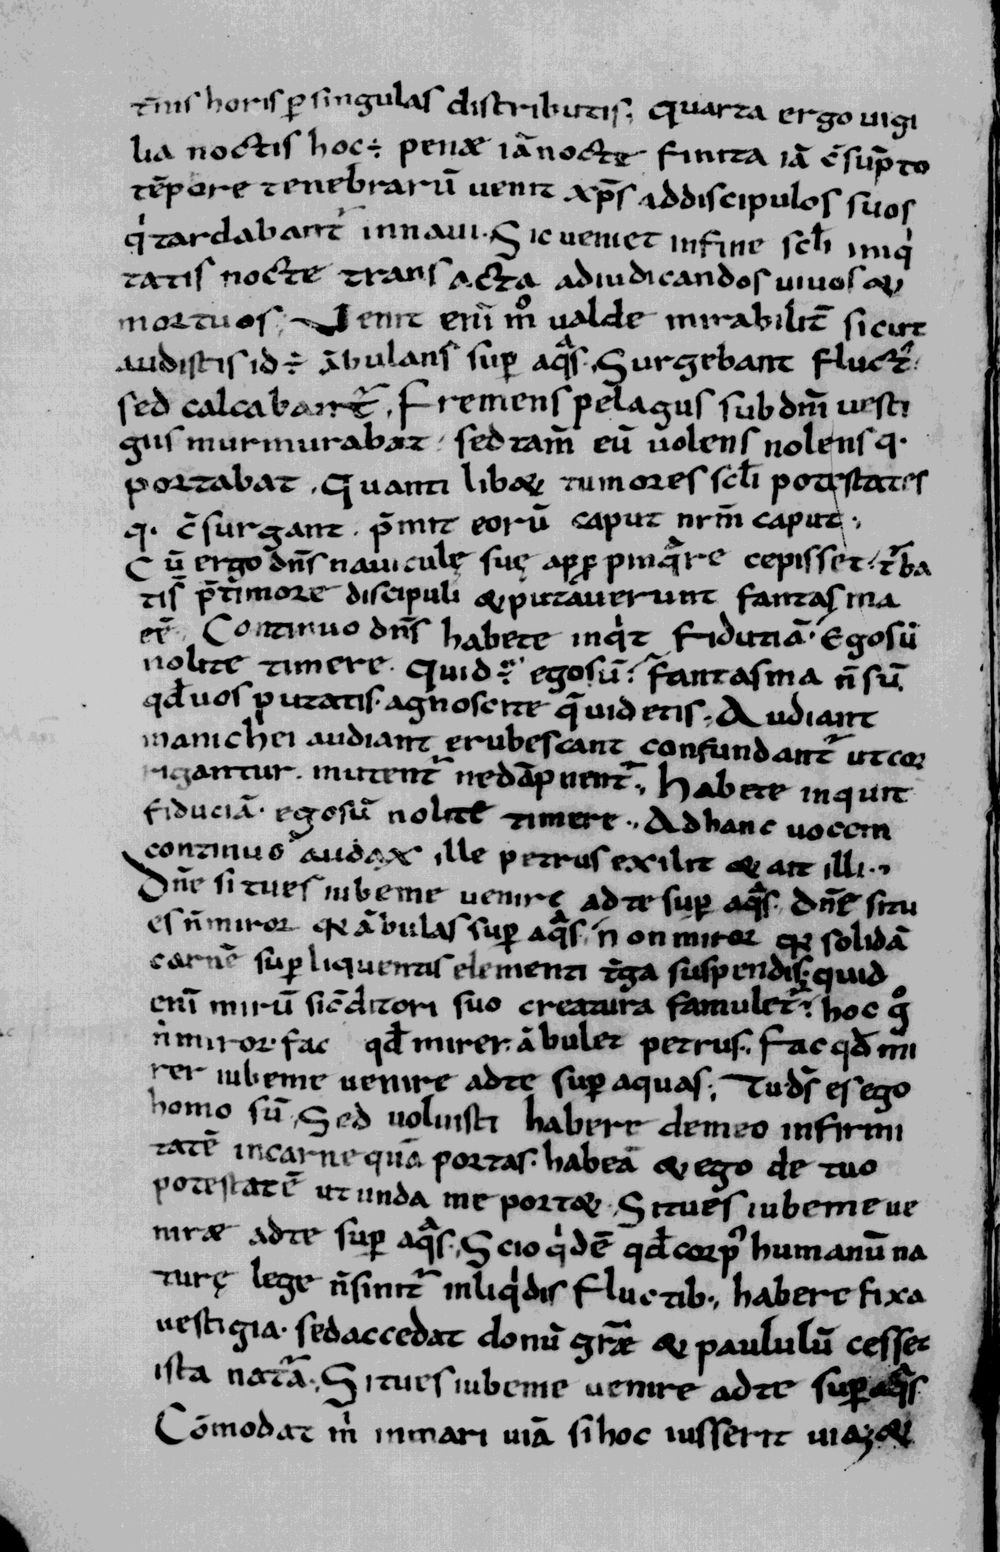 t̄nis horis ꝑ singulas distributis; Quarta ergo uigi
lia noctis hoc ÷ penæ iā nocte finita iā c̄sūpto
tēpore tenebrarū uenit xp̄s addiscipulos suos
qͥ tardabant᷑ innaui. Sic ueniet infine scl̄i iniqͥ
tatis nocte transacta adiudicandos uiuos &
mortuos; Uenit enī m̊ ualde mirabilit̄ sicut
audistis id ÷ ābulans sup̄ aqͣs. Surgebant fluct᷑.
sed calcabant᷑. Fremens pelagus sub dn̄i uesti
giis murmurabat. sed tam̄ eū uolens nolens q.
portabat. Quanti lib& tumores scl̄i potestates
q. c̄surgant. p̄mit eorū caput nr̄m caput;
Cū ergo dn̄s nauiculę suę appꝓpinqͣre cepisset. t᷑ba
tis̄ p̄timore discipuli & putauerunt fantasma
eē. Continuo dn̄s habete inqͥt fidutiā. Egosū
nolite timere. Quid ÷ egosū? fantasma n̄ sū
qd̄ uos putatis. agnoscite qͣ uidetis; Audiant
manichei audiant erubescant confundant᷑ ut cor
rigantur. mutent᷑ nedāpnent᷑; Habete inquit
fiduciā. egosū nolite timere; Ad hanc uocem
continuo audax ille petrus exilit & ait illi;
Dn̄e si tu es iubeme uenire adte sup̄ aqͣs. Dn̄e situ
es n̄ miror qꝛ ābulas sup̄ aqͣs. non miror qꝛ solidā
carnē sup̄ liquentis elementi t᷑ga suspendis; quid
enī mirū si c̄ditori suo creatura famulet᷑? hoc g̊
n̄ miror. fac qd̄ mirer. ābulet petrus. Fac qd̄ mi
rer iubeme uenire adte sup̄ aquas; Tu ds̄ es ego
homo sū. Sed uoluisti habere demeo infirmi
tatē incarne quā portas. habeā & ego de tuo
potestatē ut unda me port&. Situes iubeme ue
niræ adte sup̄ aqͣs. Scio qͥdē qd̄ corp᷒ humanū na
turę lege n̄ sinit᷑ inliqͥdis fluctib; habere fixa
uestigia. sed accedat donū gr̄æ & paululū cesset
ista nat᷑a. Situes iubeme uenire adte sup̄ aqͣs
Cōmodat m̄ inmari uiā si hoc iusserit uia; &